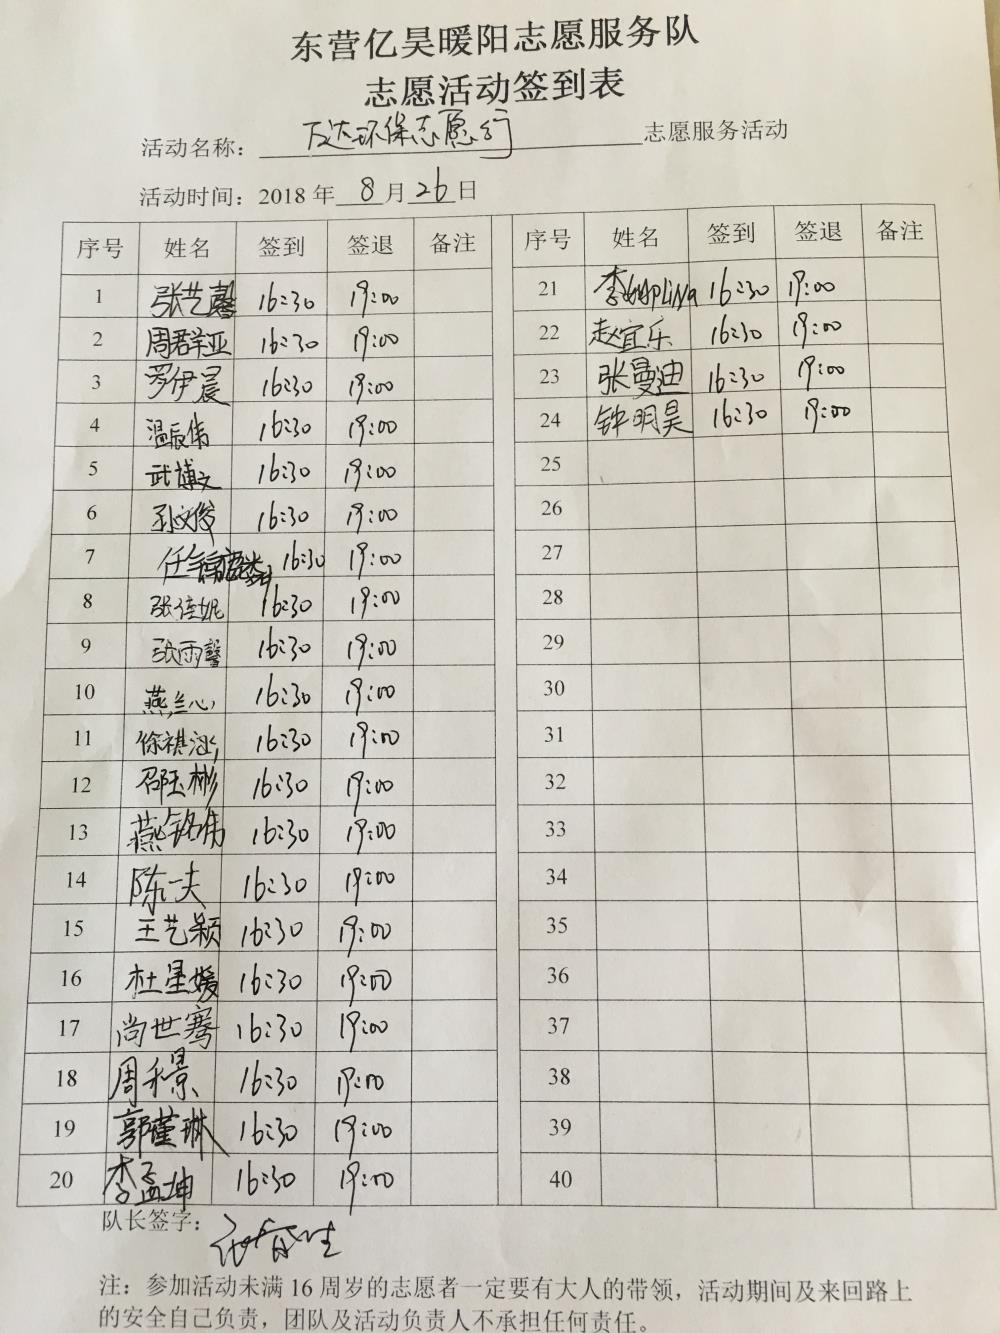 东营亿昊暖阳志愿服务队
志愿活动签到表
活动名称：万达环保志愿行志愿服务活动
活动时间：2018年8月26日
序号 姓名 签到 签退 备注 序号 姓名 签到 签退 备注
1 张艺馨 16:30 19:00 21 李 16:30 19:00
2 周群亚 16:30 19:00 22 赵宜乐 16:30 19:00
3 罗伊晨 16:30 19:00 23 张曼迪 16:30 19:00
4 温辰伟 16:30 19:00 24 钟明昊 16:30 19:00
5 武博文 16:30 19:00 25
6 孙文俊 16:30 19:00 26
7 任 16:30 19:00 27
8 张佳妮 16:30 19:00 28
9 张雨馨 16:30 19:00 29
10 燕兰心 16:30 19:00 30
11 徐祺涵 16:30 19:00 31
12 邵玉彬 16:30 19:00 32
13 燕铭伟 16:30 19:00 33
14 陈一夫 16:30 19:00 34
15 王艺颖 16:30 19:00 35
16 杜星媛 16:30 19:00 36
17 尚世骞 16:30 19:00 37
18 周禾景 16:30 19:00 38
19 郭瑾琳 16:30 19:00 39
20 李孟坤 16:30 19:00 40
队长签字：
注：参加活动未满16周岁的志愿者一定要有大人的带领，活动期间及来回路上
的安全自己负责，团队及活动负责人不承担任何责任。